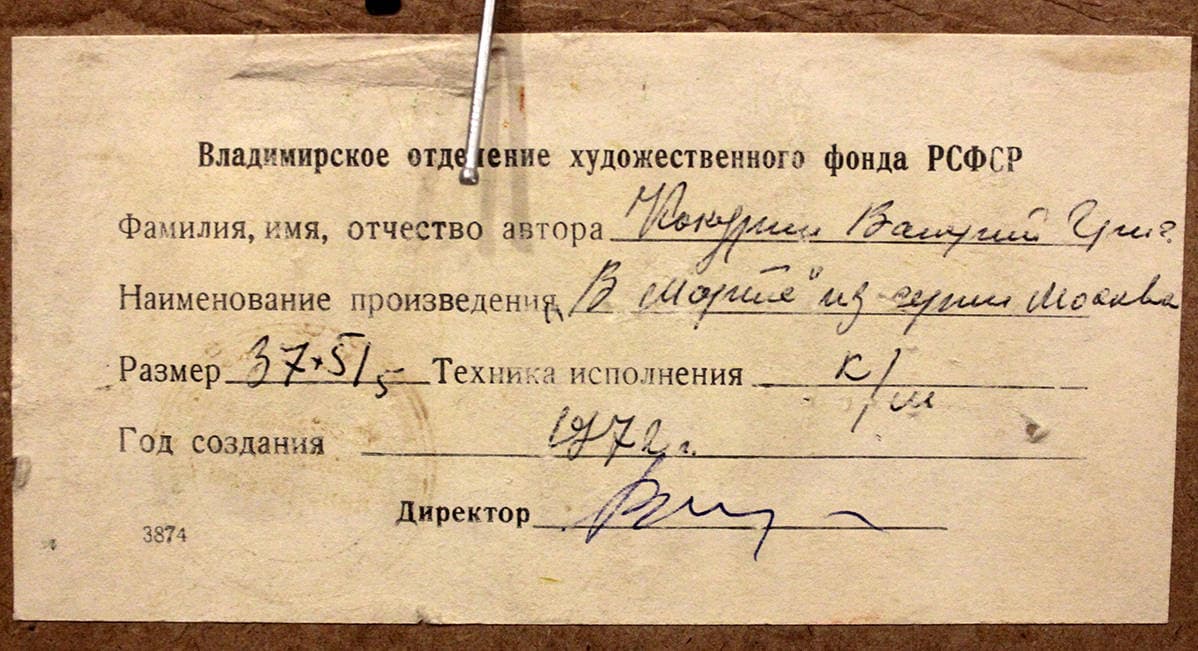 Владимирское отделение художественного фонда РСФСР
Фамилия, имя, отчество автора Кокурин Валерий Григ.
Наименование произведения В марте" из серии Москва
Размер 37×51,5 Техника исполнения к/м
Год создания 1972 г.
Директор
3874